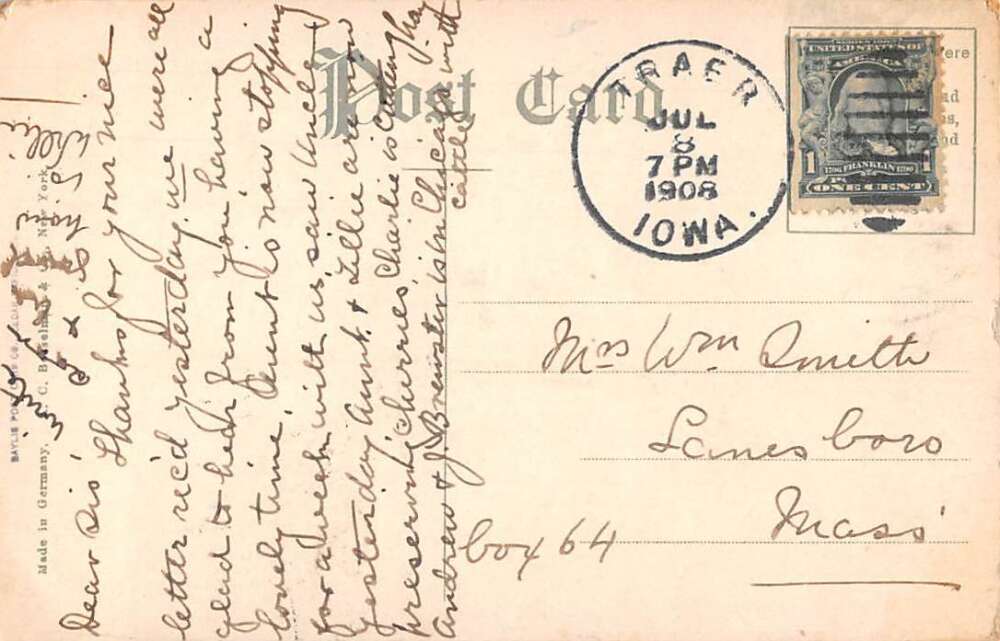 Post Card
TRAER
JUL
8
7 PM
1908
IOWA.
SERIES 1902
UNITED STATES OF
AMERICA
1706 FRANKLIN 1790
1 1
ONE CENT
Mrs Wm Smith
Lanesboro
Mass
box 64
Dear Sis'
Thanks for your nice
letter rec'd yesterday we were all
glad to hear from you having a
lovely time. Aunt is now stopping
for a week with us, saw Uncle J
yesterday Aunt & Lillie are now
preserving cherries, Charlie is cutting hay
Andrew & J Brewster is in Chicago with
cattle
write
Made in Germany,
New York